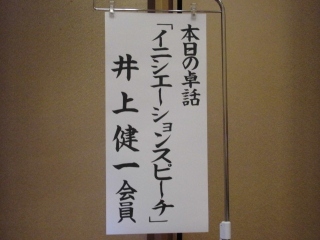 本日の卓話
「イニシエーションスピーチ」
井上健一会員